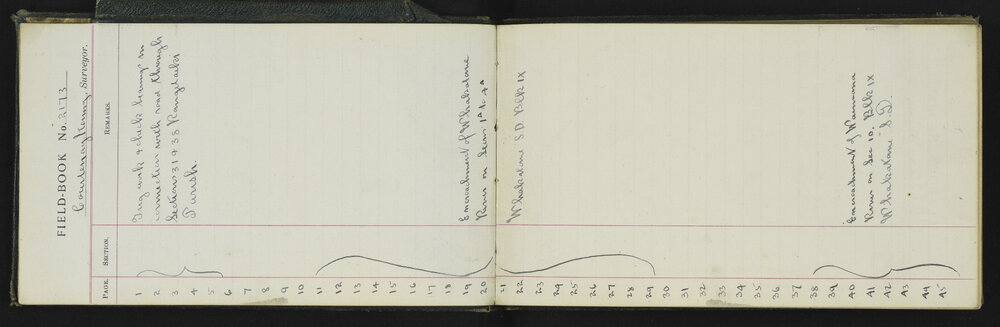 FIELD-BOOK No. 2173
Courtenay Kenny, Surveyor.
PAGE. SECTION. REMARKS.
1
2
3
4
5
6
7
8
9
10
11
12
13
14
15
16
17
18
19
20
Trig work & check bearings in
connection with road through
Sections 31 & 33 Rangitaiki
Parish
Encroachment of Whakatane
River on Secns 1A to 4A
21
22
23
24
25
26
27
28
29
30
31
32
33
34
35
36
37
38
39
40
41
42
43
44
45
Whakatane S.D. Blk IX
Encroachment of
River on Sec 10. Blk IX
Whakatane S.D.